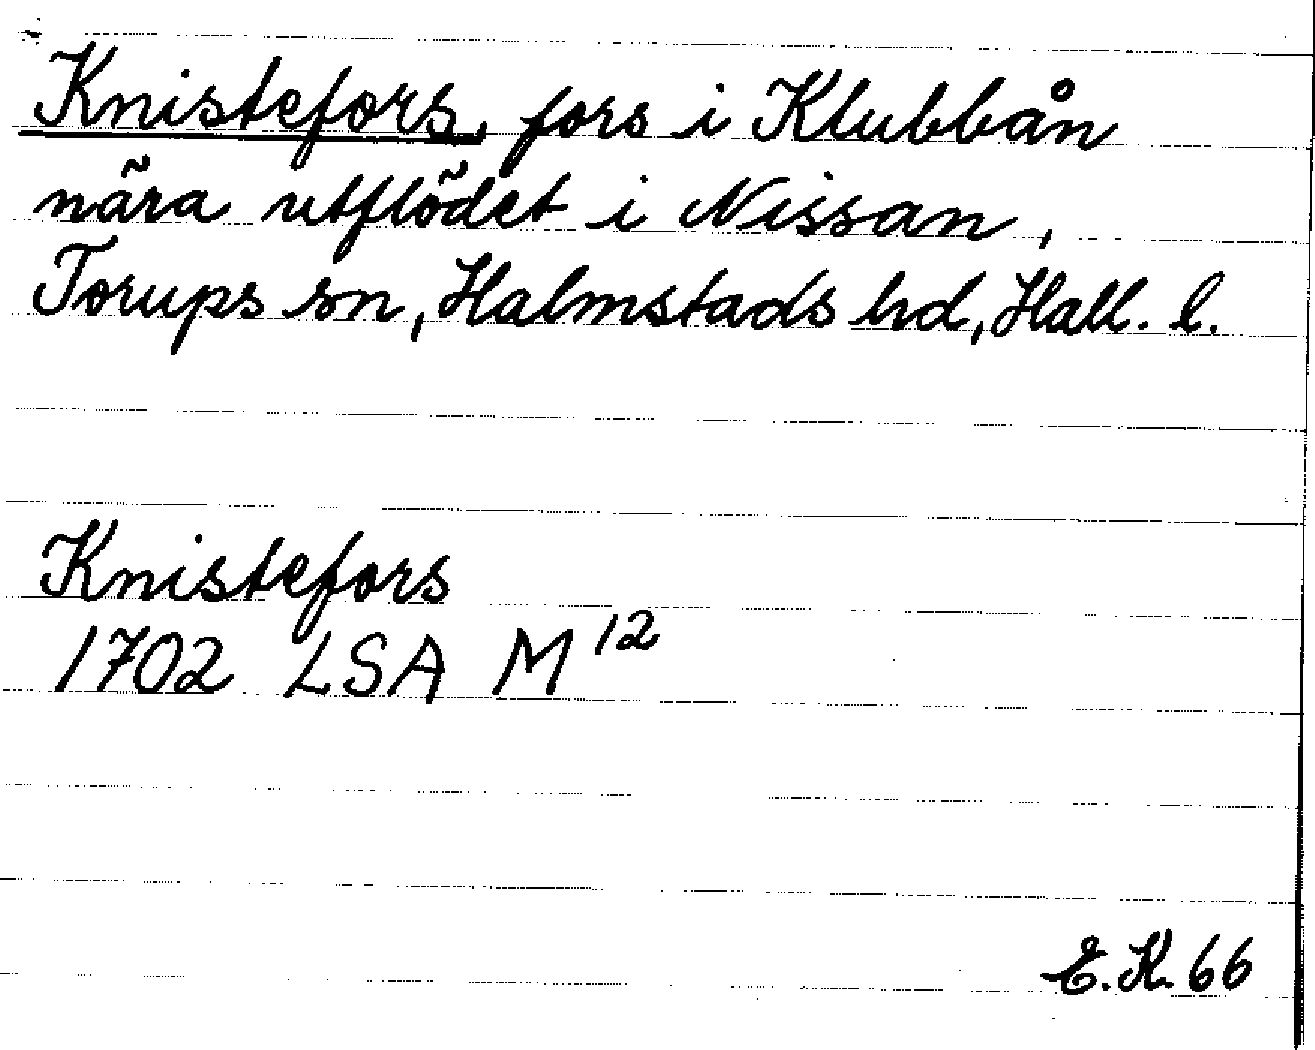 Knistefors, fors i Klubbån
nära utflödet i Nissan,
Torups sn, Halmstads hd, Hall. l.
Knistefors
1702 LSA M¹²
E.K. 66